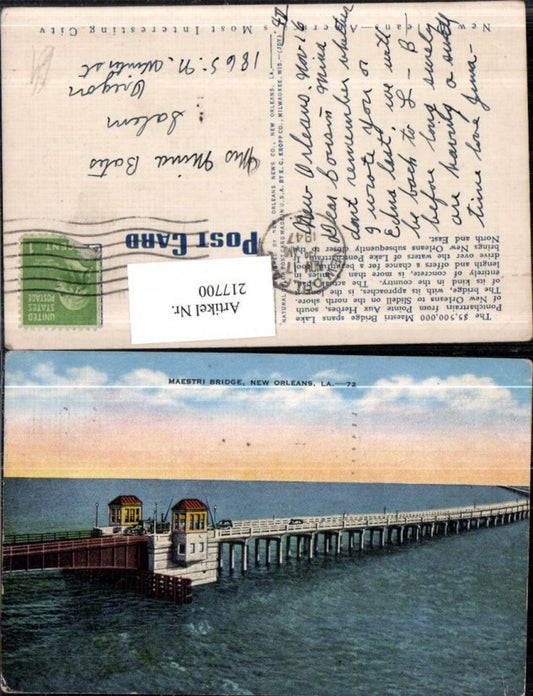 New Orleans, America's Most Interesting City
POST CARD
UNITED STATES
POSTAGE
1 CENT 1
1947
The $5,500,000 Maestri Bridge spans Lake
Pontchartrain From Pointe Aux Herbes, south
of New Orleans to Slidell on the north shore.
The bridge, with its approaches, is the
of its kind in the country. The actual
entirely of concrete, is more than miles in
length and offers a chance for a beautiful
drive over the waters of Lake Pontchartrain to the
bring New Orleans subsequently closer to the
North and East.
NEW ORLEANS NEWS CO., NEW ORLEANS, LA.
MADE IN U.S.A. BY E. C. KROPP CO., MILWAUKEE, WIS.
New Orleans. Nov 16 47
Dear Cousin Mina
dont remember whether
I wrote you or
Edna last, we will
be back to L - B
before long surely
are having a swell
time love Jima-
Mrs Mina Bates
Salem
Oregon
1865 N. Winter st
Artikel Nr.
217700
MAESTRI BRIDGE, NEW ORLEANS, LA.—72